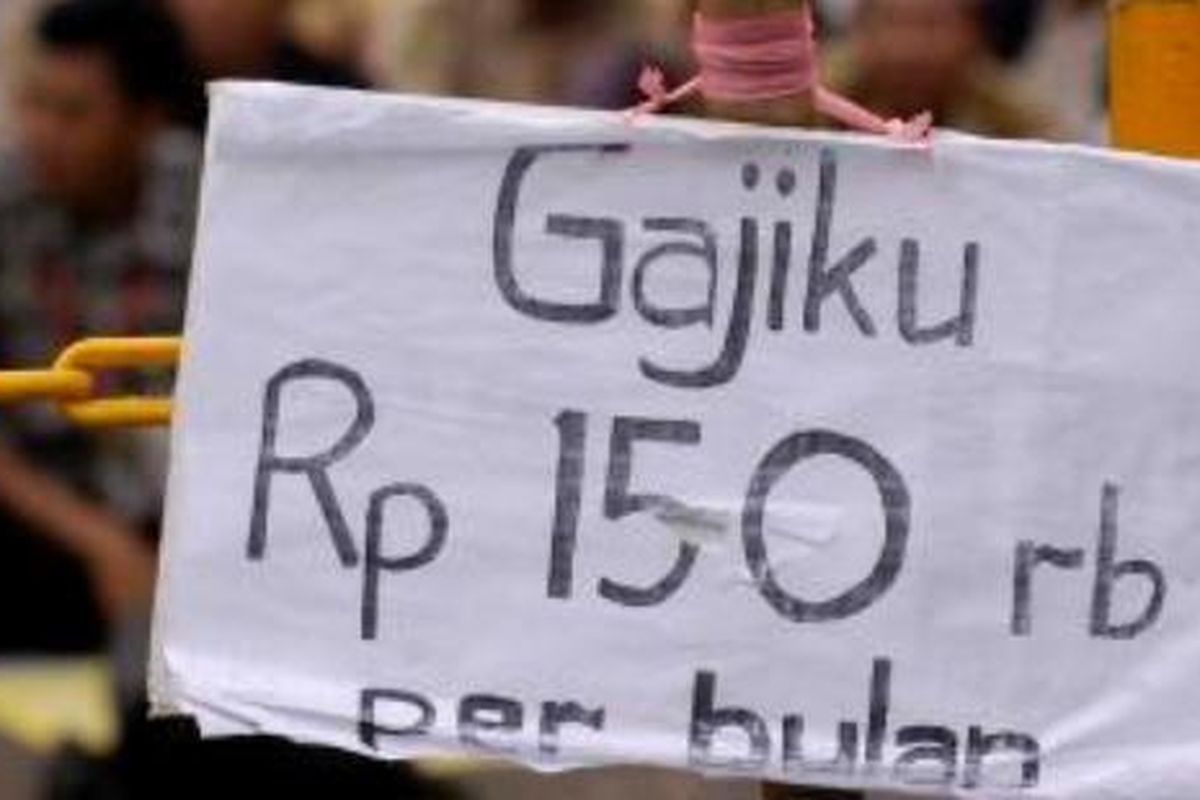 Gajiku
Rp 150 rb
per bulan